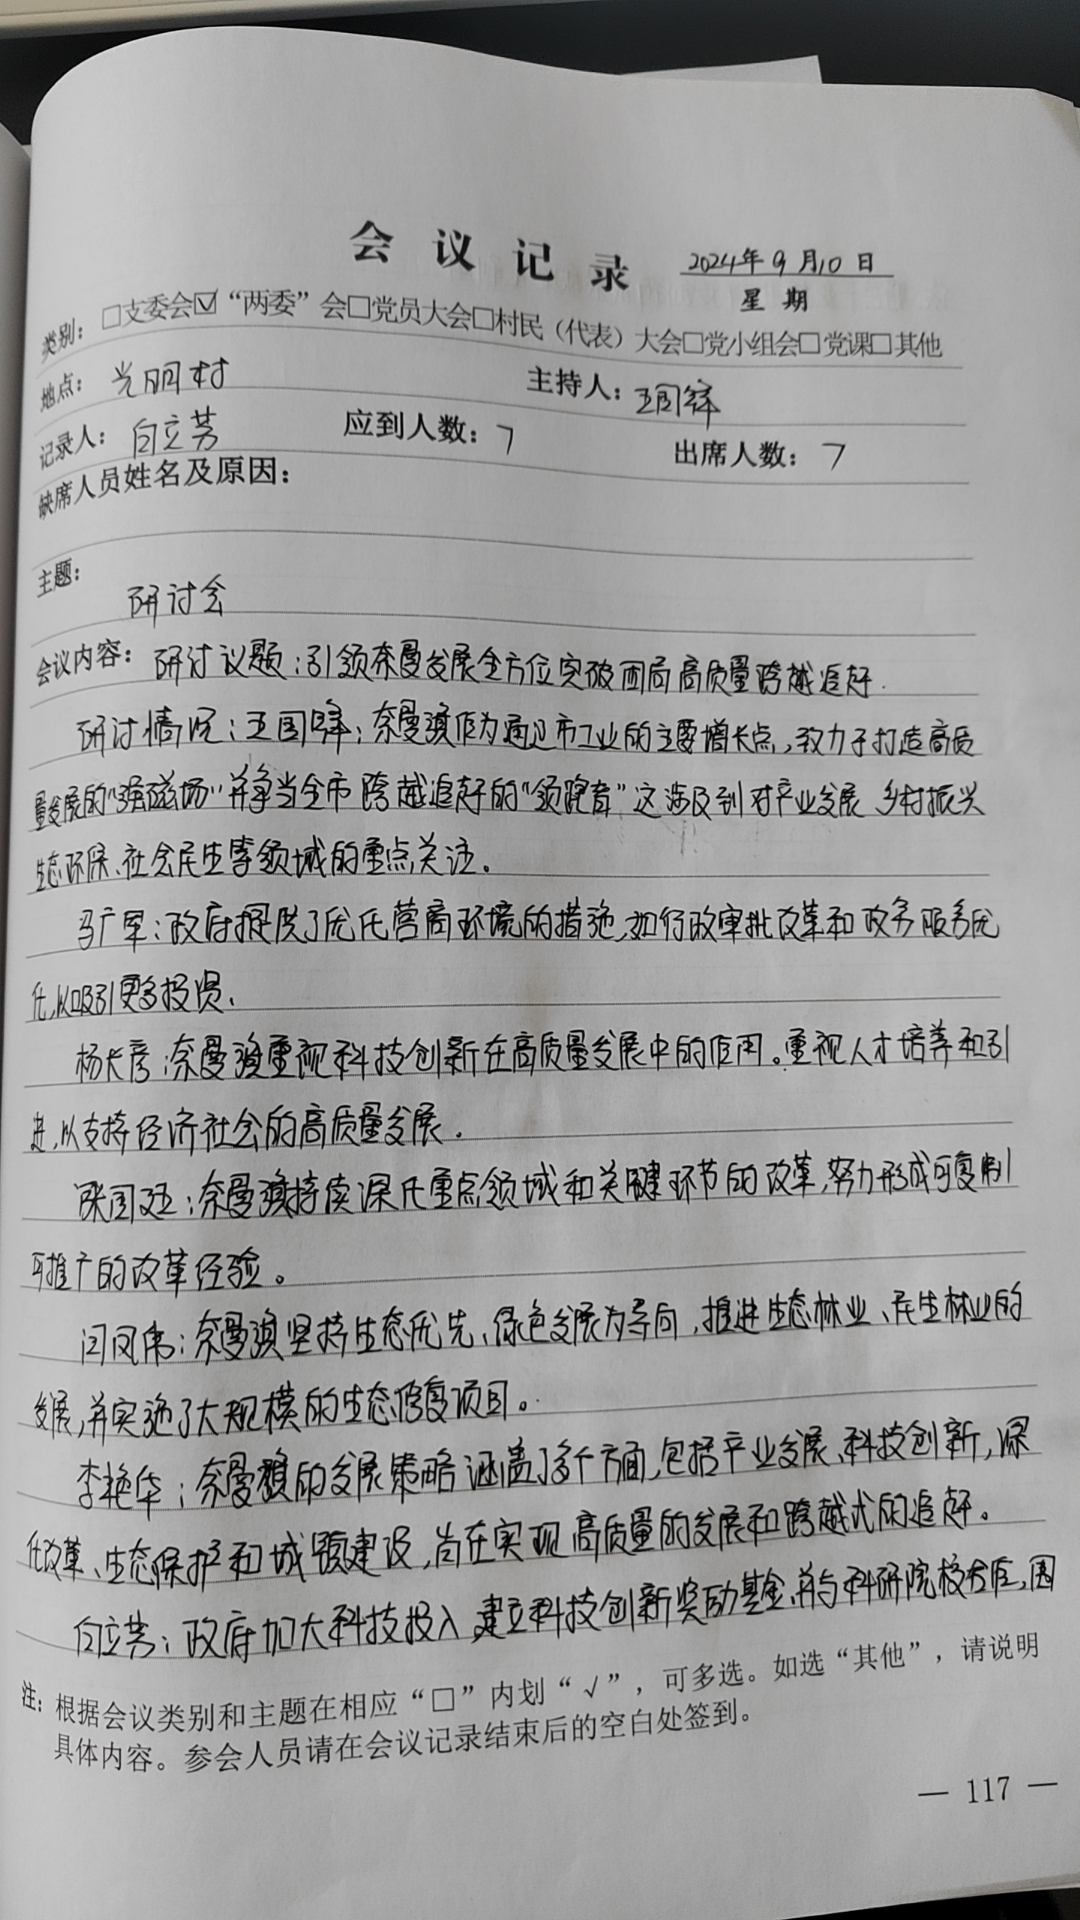 会议记录
2024年9月10日
星期
类别：□支委会☑“两委”会□党员大会□村民（代表）大会□党小组会□党课□其他
地点：光明村 主持人：王国锋
记录人：白立芳 应到人数：7 出席人数：7
缺席人员姓名及原因：
主题：
研讨会
会议内容：研讨议题：引领奈曼发展全方位突破困局高质量跨越追赶.
研讨情况：王国锋：奈曼旗作为通辽市工业的主要增长点，致力于打造高质
量发展的“强磁场”并争当全市跨越追赶的“领跑者”这涉及到对产业发展 乡村振兴
生态环保、社会民生等领域的重点关注。
马广军：政府提供了优化营商环境的措施，如行政审批改革和政务服务优
化，以吸引更多投资、
杨长彦：奈曼旗重视科技创新在高质量发展中的作用。重视人才培养和引
进，以支持经济社会的高质量发展.
国廷：奈曼旗持续深化重点领域和关键环节的改革，努力形成可复制
可推广的改革经验。
闫凤伟：奈曼旗坚持生态优先、绿色发展为导向，推进生态林业、民生林业的
发展，并实施了大规模的生态修复项目。
李艳华：奈曼旗的发展策略涵盖了多个方面，包括产业发展、科技创新，深
化改革、生态保护和城镇建设，尚在实现高质量的发展和跨越式的追赶。
白立芳：政府加大科技投入，建立科技创新奖励基金，并与科研院校合作，围
注：根据会议类别和主题在相应“□”内划“√”，可多选。如选“其他”，请说明
具体内容。参会人员请在会议记录结束后的空白处签到。
— 117 —